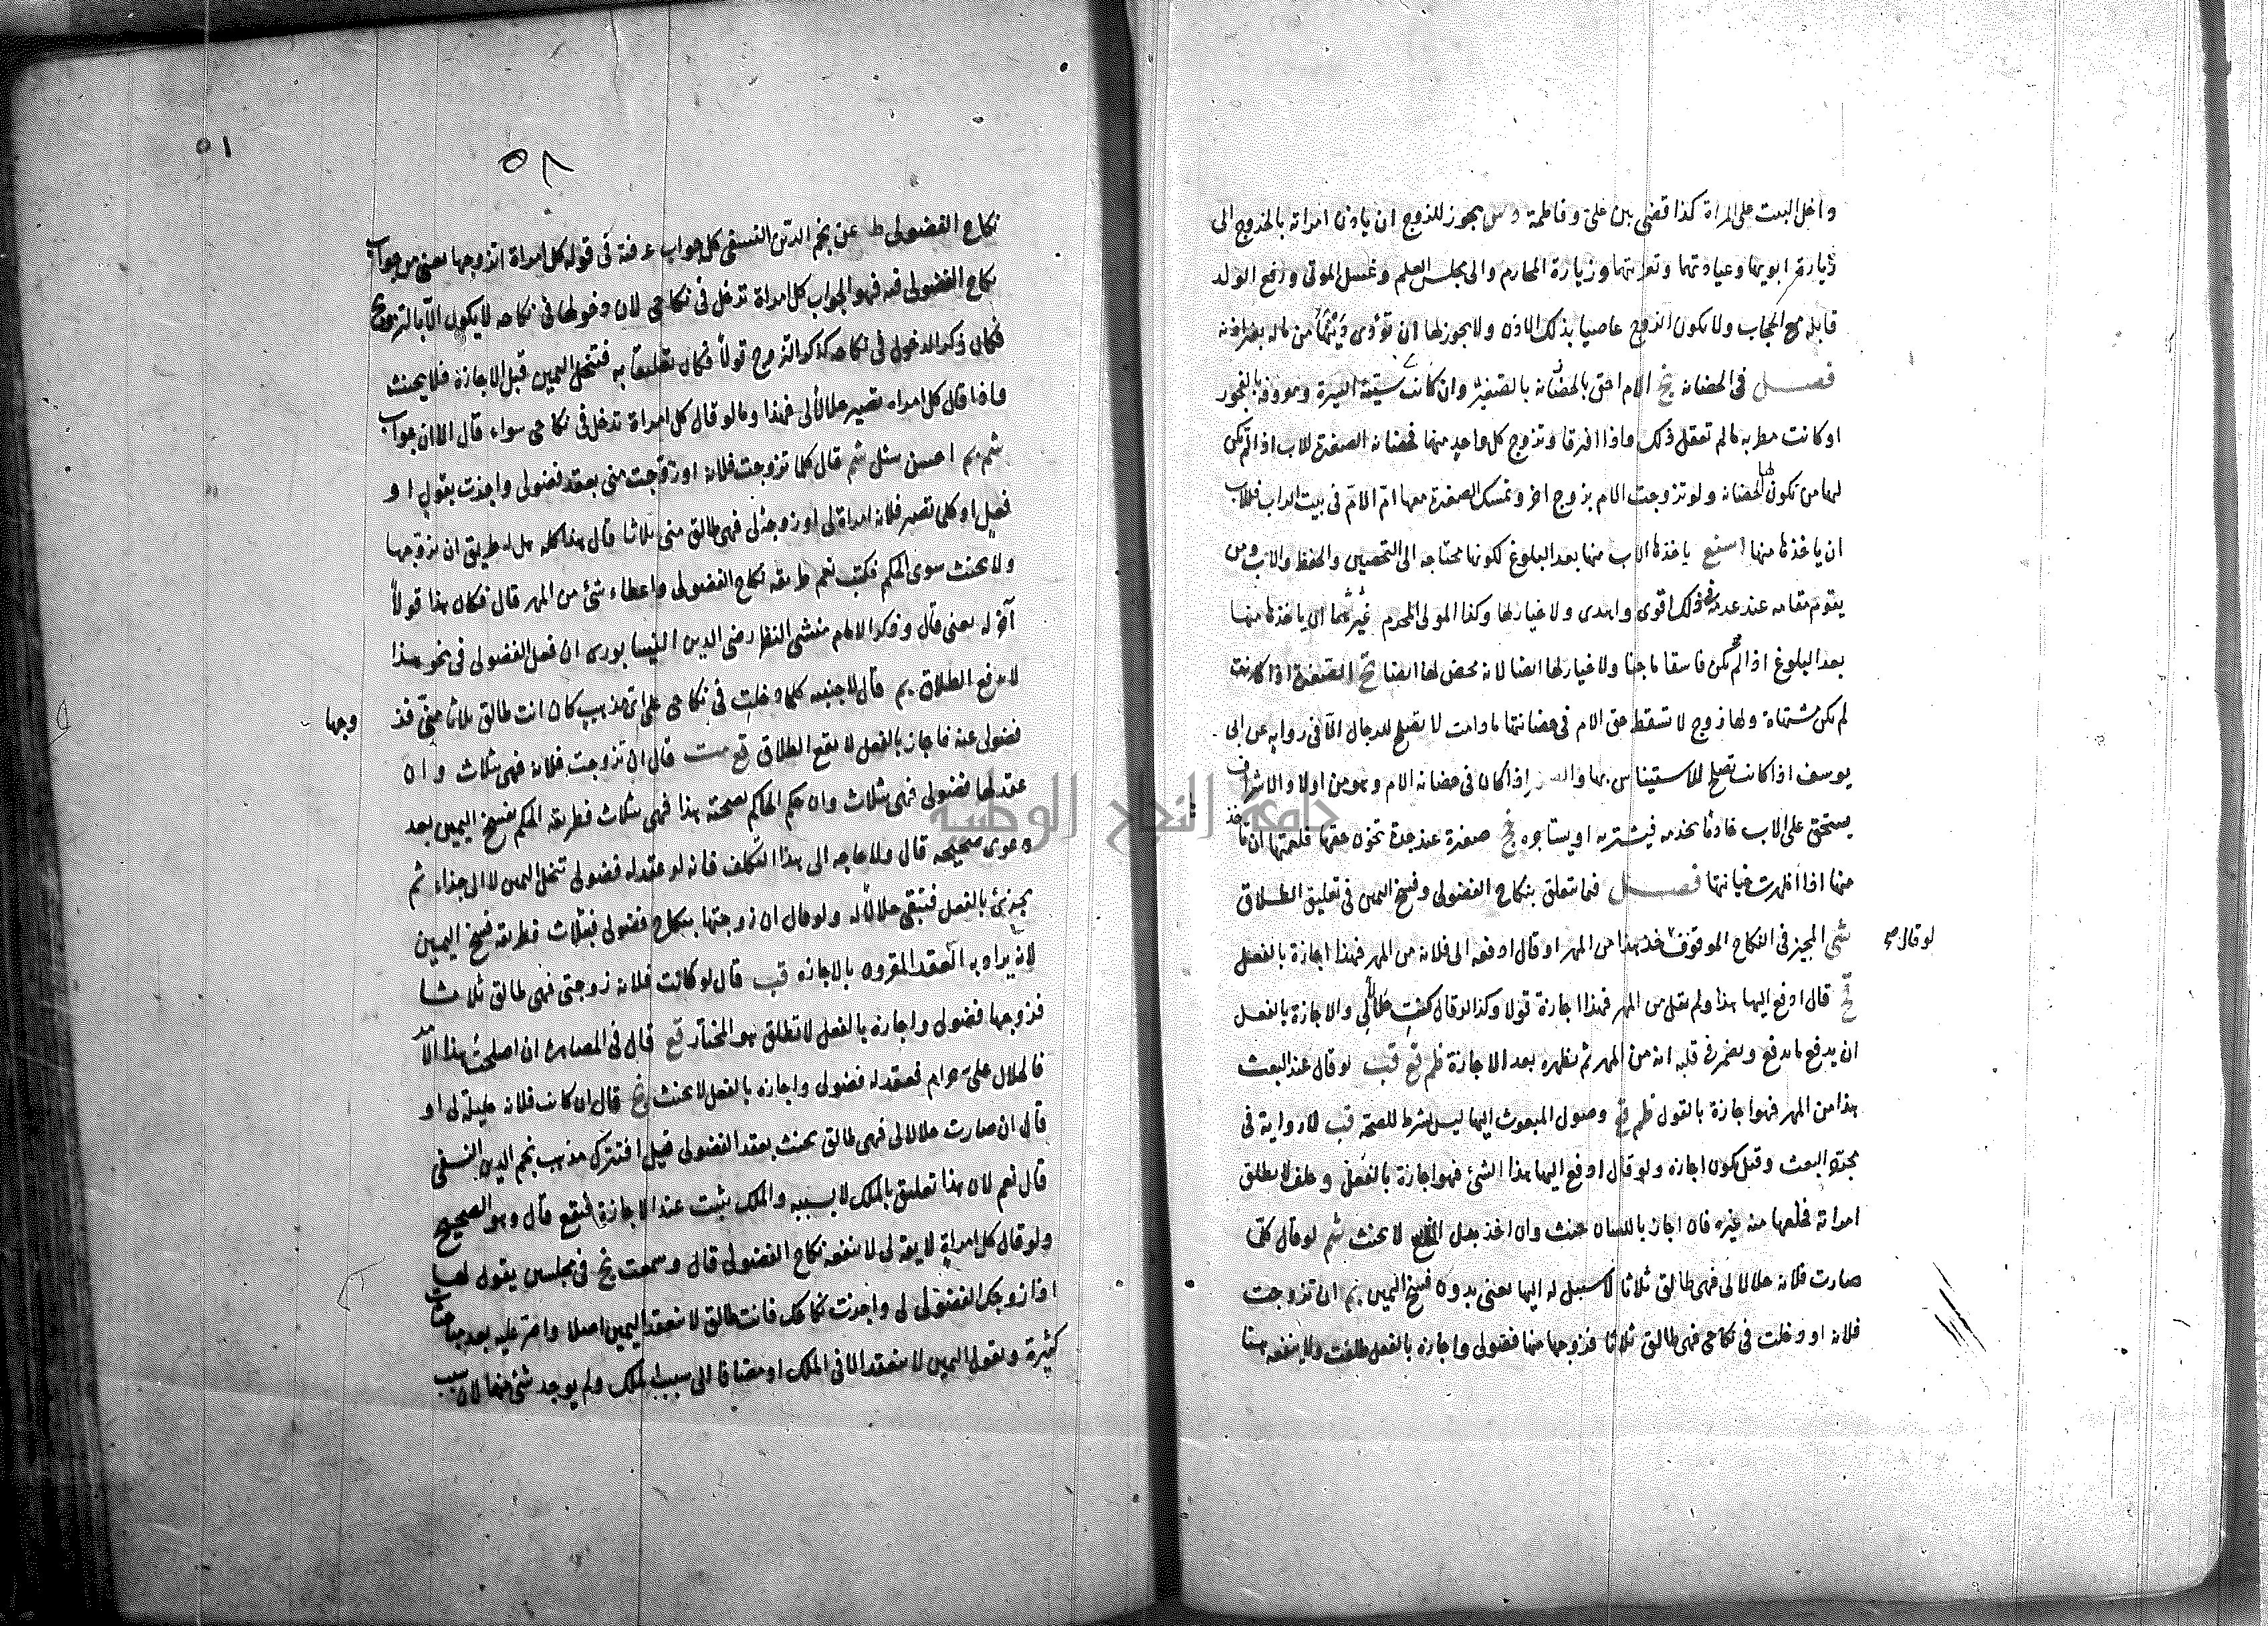 داخل البيت على المراة كذا قضى بين على وفاطمة يجوز للزوج ان ياذن امراته بالخروج الى
زيارة ابويها وعيادتها وتعزيتها وزيارة المحارم والى مجلس العلم وغسل الموتى ورفع الولد
قابلة مع الحجاب ولا يكون الزوج عاصيا بذلك الاذن ولا يجوز لها ان تؤدى من ماله بغير اذنه
فصل فى الحضانة نج الام احق بالحضانة بالصغير وان كانت سيئة السيرة ومعروفة بالفجور
او كانت مطربة مالم تعقل ذلك واذا افترقا وتزوج كل واحد منهما فحضانة الصغيرة للاب اذا لم يكن
لها من تكون لها الحضانة ولو تزوجت الام بزوج اخر وتمسك الصغيرة معها ام الام فى بيت الراب فللاب
ان ياخذها منها ياخذها الاب منها بعد البلوغ لكونها محتاجة الى التحصين والحفظ والاب ومن
يقوم مقامه عند عدمه فى ذلك اقوى واهدى ولا خيار لها وكذا المولى المحرم غيرهما ان ياخذها منها
بعد البلوغ اذا لم يكن فاسقا ماجنا ولا خيار لها ايضا لانه محض لها ايضا نج الصغيرة اذا كانت
لم يكن مشتهاة ولها زوج لا تسقط حق الام فى حضانتها مادامت لا تصلح للرجال الا فى رواية عن ابى
يوسف اذا كانت تصلح للاستيناس بها اذا كان فى حضانة الام وهو من اولاد الاشراف
يستحق على الاب خادما يخدمه فيشتريه او يستاجره نج صغيرة عند جدة تخون حقها فلعمتها ان تاخذ
منها اذا ظهرت خيانتها فصل فيما يتعلق بنكاح الفضولى وفسخ اليمين فى تعليق الطلاق
شم المجيز فى النكاح الموقوف خذ هذا من المهر او قال ادفعه الى فلانة من المهر فهذا اجازة بالفعل
لو قال صح
نج قال ادفع اليها هذا ولم يقل من المهر فهذا اجازة قولا وكذا لو قال والاجازة بالفعل
ان يدفع ما يدفع ويضمر فى قلبه انه من المهر ثم يظهره بعد الاجازة ظم قع قب لو قال عند البعث
هذا من المهر فهو اجازة بالقول ظم قع وصول المبعوث اليها ليس بشرط للصحة قب لا رواية فى
مجرد البعث وقيل يكون اجازة ولو قال ادفع اليها هذا الشئ فهو اجازة بالفعل وحلف لا يطلق
امراته فخلعها منه غيره فان اجاز باللسان حنث وان اخذ بدل الخلع لا يحنث شم لو قال كلما
صارت فلانة حلالا لى فهى طالق ثلاثا لا سبيل له اليها يعنى بدون فسخ اليمين بم ان تزوجت
فلانة او دخلت فى نكاحى فهى طالق ثلاثا فزوجها منها فضولى واجازه بالفعل طلقت ولا ينفعه هنا
٥١
٥٨
نكاح الفضولى ط عن نجم الدين النسفى كل جواب عرفته فى قوله كل امراة اتزوجها يعنى من جواب
نكاح الفضولى فيه فهو الجواب كل امراة تدخل فى نكاحى لان دخولها فى نكاحه لا يكون الا بالتزوج
فكان ذكر الدخول فى نكاحه كذكر التزوج قولا فكان تعليقا به فتنحل اليمين قبل الاجازة فلا يحنث
واذا قال كل امراة تصير حلالا لى فهذا وما لو قال كل امراة تدخل فى نكاحى سواء قال الا ان جواب
شم بم احسن سئل شم قال كلما تزوجت فلانة او زوجت منى بعقد فضولى واجزت بقول او
فعل او كلما تصير فلانة امراة لى او زوجة لى فهى طالق منى ثلاثا قال هذا كله هل له طريق ان يتزوجها
ولا يحنث سوى الحكم فكتب نعم طريقه نكاح الفضولى واعطاء شئ من المهر قال فكان هذا قولا
آخر له يعنى قال وذكر الامام منشئ النظر رضى الدين النيسابورى ان فعل الفضولى فى نحو هذا
لا يرفع الطلاق بم قال لاجنبية كلما دخلت فى نكاحى على اى مذهب كان انت طالق ثلاثا منى فز
وجها
فضولى عنه فاجاز بالفعل لا يقع الطلاق قع قال ان تزوجت فلانة فهى بثلاث وان
عقد لها فضولى فهى بثلاث وان حكم الحاكم بصحة هذا فهى بثلاث فطريقه الحكم بفسخ اليمين بعد
دعوى صحيحة قال ولا حاجة الى هذا التكلف فانه لو عقد له فضولى تنحل اليمين لا الى جزاء ثم
يجيزه بالفعل فتبقى حلالا له ولو قال ان زوجتها بنكاح فضولى فبثلاث فطريقه فسخ اليمين
لانه يراد به العقد المقرون بالاجازة قب قال لو كانت فلانة زوجتى فهى طالق ثلاثا
فزوجها فضولى واجازه بالفعل لا تطلق هو المختار قع قال فى المصاهرة ان اصلحت هذا الامر
فالحلال على حرام فعقد له فضولى واجازه بالفعل لا يحنث نج قال ان كانت فلانة حليلة لى او
قال ان صارت حلالا لى فهى طالق يحنث بعقد الفضولى قيل افتترك مذهب نجم الدين النسفى
قال نعم لان هذا تعليق بالملك لا بسببه والملك يثبت عند الاجازة فيقع قال وهو الصحيح
ولو قال كل امراة لا ينفعه نكاح الفضولى قال وسمعت نج فى مجلسين يقول لها
اذا زوجك الفضولى لى واجزت نكاحك فانت طالق لا ينعقد اليمين اصلا واصر عليه بعد مباحثات
كثيرة ويقول اليمين لا ينعقد الا فى الملك او مضافا الى سبب الملك ولم يوجد شئ منهما لان سبب
جامعة النجاح الوطنية